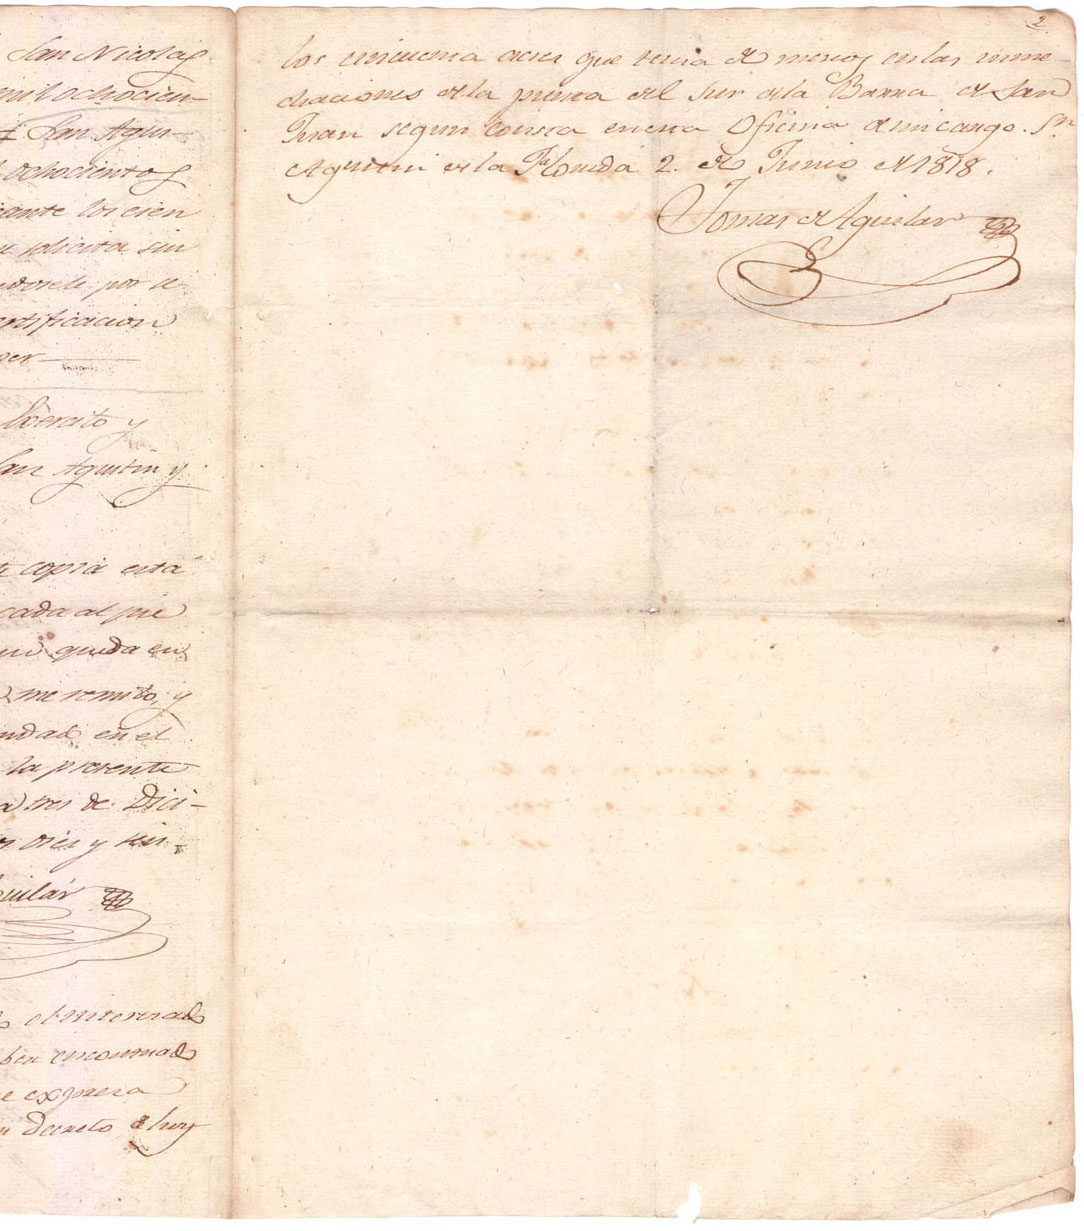 San Nicolas
mil ochocien-
San Agus-
ochocientos
cante los cien
solicita sin
ndosele por
ertificacion
der
Exercito y
San Agustin y
copia está
cada al pie
queda en
me remito, y
ndad en el
la presente
a tres de Dici-
diez y seis.
guilár
el interesado
expresa
Decreto de hoy
2
los cincuenta acres que tenia de menos en las inme-
diaciones de la punta del Sur de la Barra de San
Juan segun consta en esta Oficina de mi cargo. Sn.
Agustin de la Florida 2. de Junio de 1818.
Tomas de Aguilar